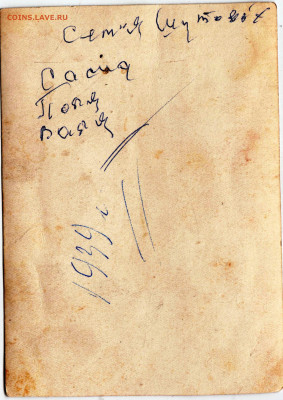 COINS.LAVE.RU
Семья Шутовых
Саша
Поля
Ваня
1939 г